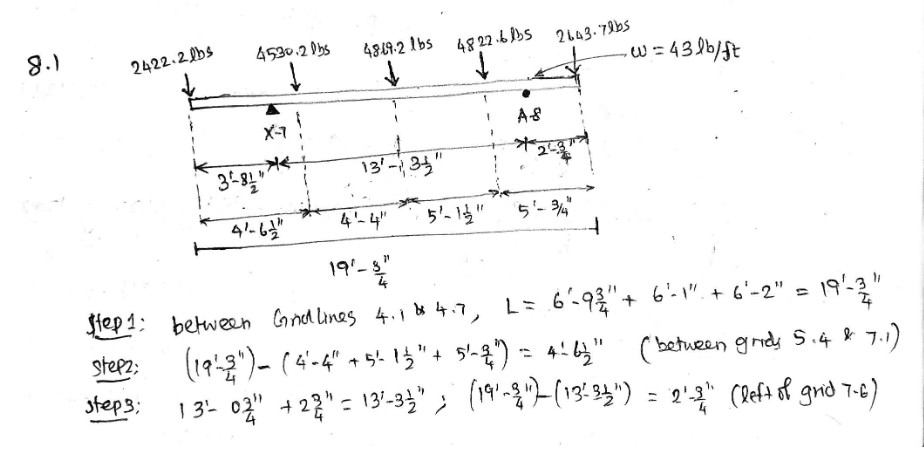 8.1)
2422.2 lbs 4530.2 lbs 4869.2 lbs 4822.6 lbs 2643.7 lbs
w = 43 lb/ft
X-7 A-8
3'-8½" 13'-3½" 2'-¾"
4'-6½" 4'-4" 5'-1½" 5'-¾"
19'-¾"
Step 1: between Gridlines 4.1 & 4.7, L = 6'-9¾" + 6'-1" + 6'-2" = 19'-¾"
Step2: (19'-¾") - (4'-4" + 5'-1½" + 5'-¾") = 4'-6½" (between grids 5.4 & 7.1)
Step3: 13'-0¾" + 2¾" = 13'-3½" ; (19'-¾")-(13'-3½") = 2'-¾" (left of grid 7-6)